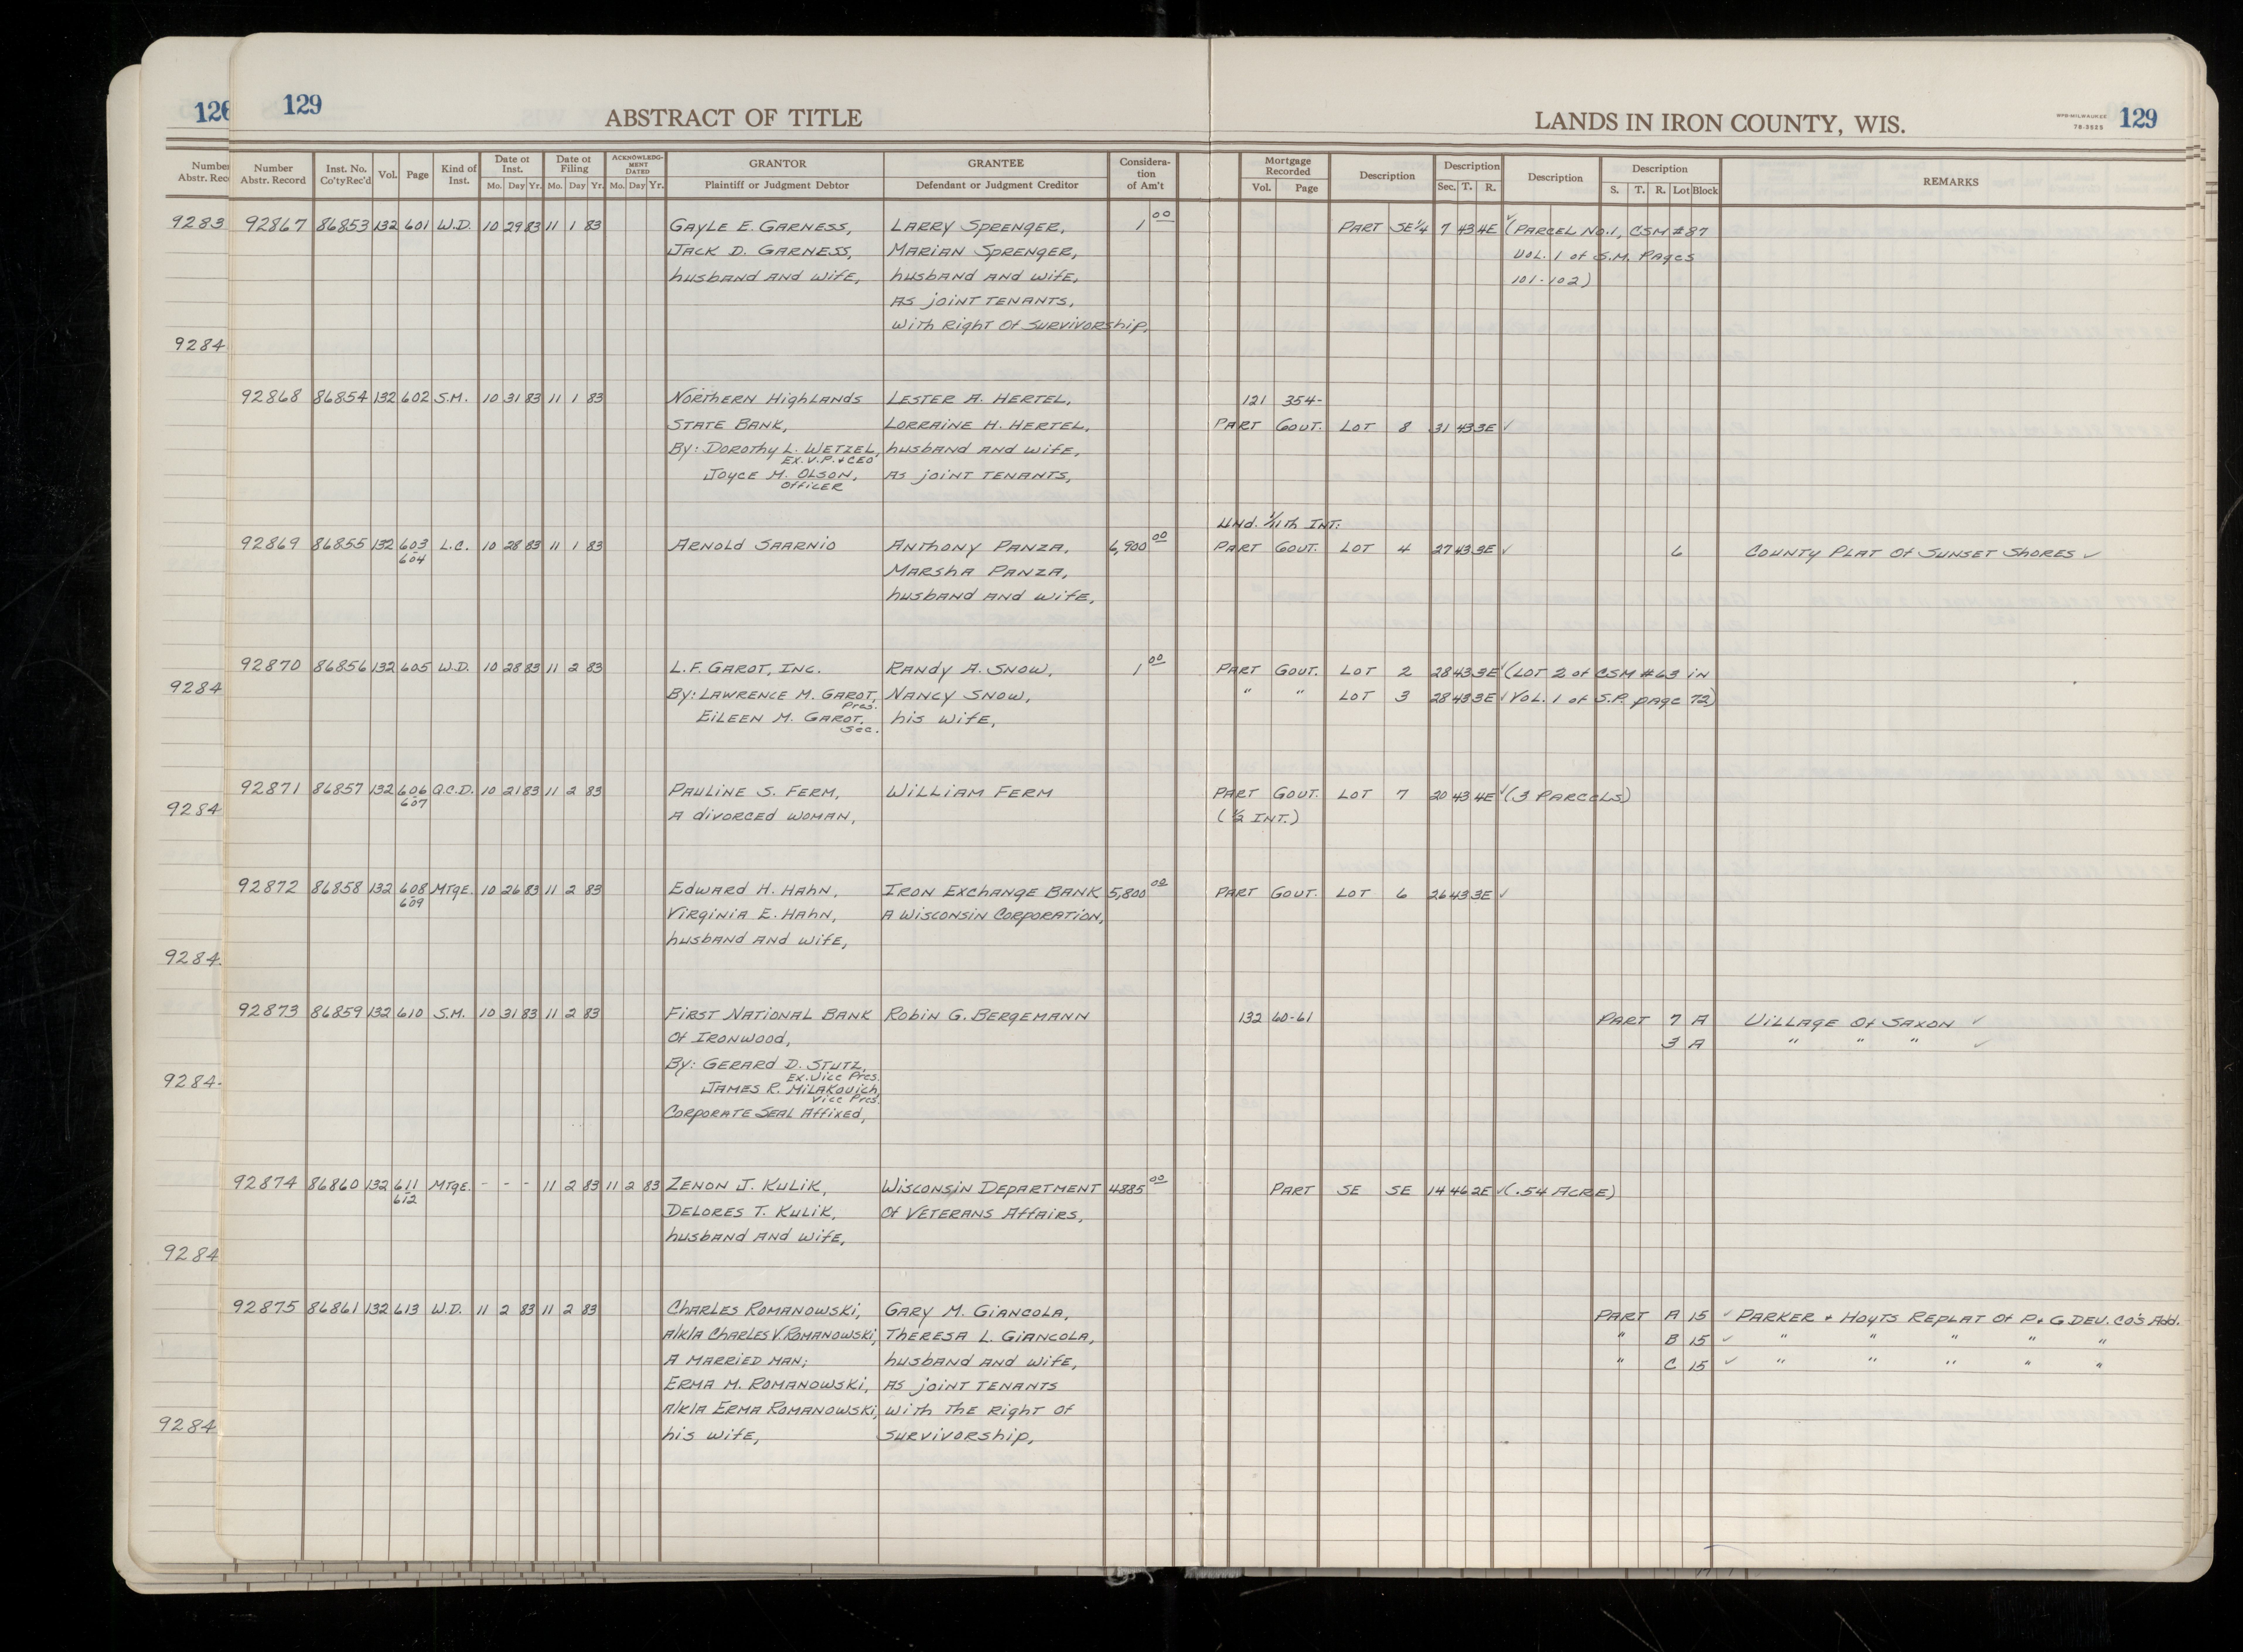 126 129 ABSTRACT OF TITLE LANDS IN IRON COUNTY, WIS. WPB-MILWAUKEE 76-3925 129
Number Abstr. Rec
Number Abstr. Record Inst. No. Co'ty Rec'd Vol. Page Kind of Inst. Date of Inst. Mo. Day Yr. Date of Filing Mo. Day Yr. ACKNOWLEDGMENT DATED Mo. Day Yr. GRANTOR Plaintiff or Judgment Debtor GRANTEE Defendant or Judgment Creditor Consideration of Am't Mortgage Recorded Vol. Page Description Description Sec. T. R. Description Description S. T. R. Lot Block REMARKS
9283 92867 86853 132 601 W.D. 10 29 83 11 1 83 GAYLE E. GARNESS, LARRY SPRENGER, 1 00 PART SE 1/4 7 43 4E ✓ (PARCEL NO. 1, CSM #87
JACK D. GARNESS, MARIAN SPRENGER, VOL. 1 of S.M. PAges
husband AND wife, husband AND wife, 101-102)
AS joint TENANTS,
with Right Of SURVIVORship,
9284
92868 86854 132 602 S.M. 10 31 83 11 1 83 NORTHERN HighLANDS LESTER A. HERTEL, 121 354-
STATE BANK, LORRAINE H. HERTEL, PART GOVT. LOT 8 31 43 3E ✓
By: DOROTHY L. WETZEL, husband AND wife,
EX. V.P. & CEO
JOYCE M. OLSON, AS joint TENANTS,
OFFICER
Und. 1/11th INT:
92869 86855 132 603 L.C. 10 28 83 11 1 83 ARNOLD SAARNIO ANTHONY PANZA, 6,900 00 PART GOVT. LOT 4 27 43 3E ✓ 6 COUNTY PLAT Of SUNSET SHORES ✓
-604 MARSHA PANZA,
husband AND wife,
92870 86856 132 605 W.D. 10 28 83 11 2 83 L.F. GAROT, INC. RANDY A. SNOW, 1 00 PART GOVT. LOT 2 28 43 3E ✓ (LOT 2 of CSM #63 in
9284 By: LAWRENCE M. GAROT, NANCY SNOW, " " LOT 3 28 43 3E ✓ VOL. 1 of S.P. page 72)
Pres.
EILEEN M. GAROT, his wife,
Sec.
92871 86857 132 606 Q.C.D. 10 21 83 11 2 83 PAULINE S. FERM, WILLIAM FERM PART GOVT. LOT 7 20 43 4E ✓ (3 PARCELS)
9284 -607 A divorced woman, (1/2 INT.)
92872 86858 132 608 MTge. 10 26 83 11 2 83 Edward H. HAHN, IRON ExchANge BANK 5,800 00 PART GOVT. LOT 6 26 43 3E ✓
-609 VIRGINIA E. HAHN, A WISCONSIN CORPORATION,
husband AND wife,
9284
92873 86859 132 610 S.M. 10 31 83 11 2 83 FIRST NATIONAL BANK ROBIN G. BERGEMANN 132 60-61 PART 7 A VILLAGE Of SAXON ✓
Of IRONWOOD, 3 A " " " ✓
By: GERARD D. STUTZ,
Ex. Vice Pres.
9284 JAMES R. MILAKOVICH,
Vice Pres.
CORPORATE SEAL Affixed,
92874 86860 132 611 MTge. - - - 11 2 83 11 2 83 ZENON J. KULIK, WISCONSIN DEPARTMENT 4885 00 PART SE SE 14 46 2E ✓ (.54 ACRE)
-612 DELORES T. KULIK, Of VETERANS AffAiRS,
husband AND wife,
9284
92875 86861 132 613 W.D. 11 2 83 11 2 83 CHARLES ROMANOWSKI, GARY M. GIANCOLA, PART A 15 ✓ PARKER & HOYTS REPLAT Of P & G DEV. CO'S Add.
A/K/A CHARLES V. ROMANOWSKI, THERESA L. GIANCOLA, " B 15 ✓ " " " " "
A MARRIED MAN; husband AND wife, " C 15 ✓ " " " " "
ERMA M. ROMANOWSKI, AS joint TENANTS
A/K/A ERMA ROMANOWSKI, with The Right of
9284 his wife, SURVIVORship,